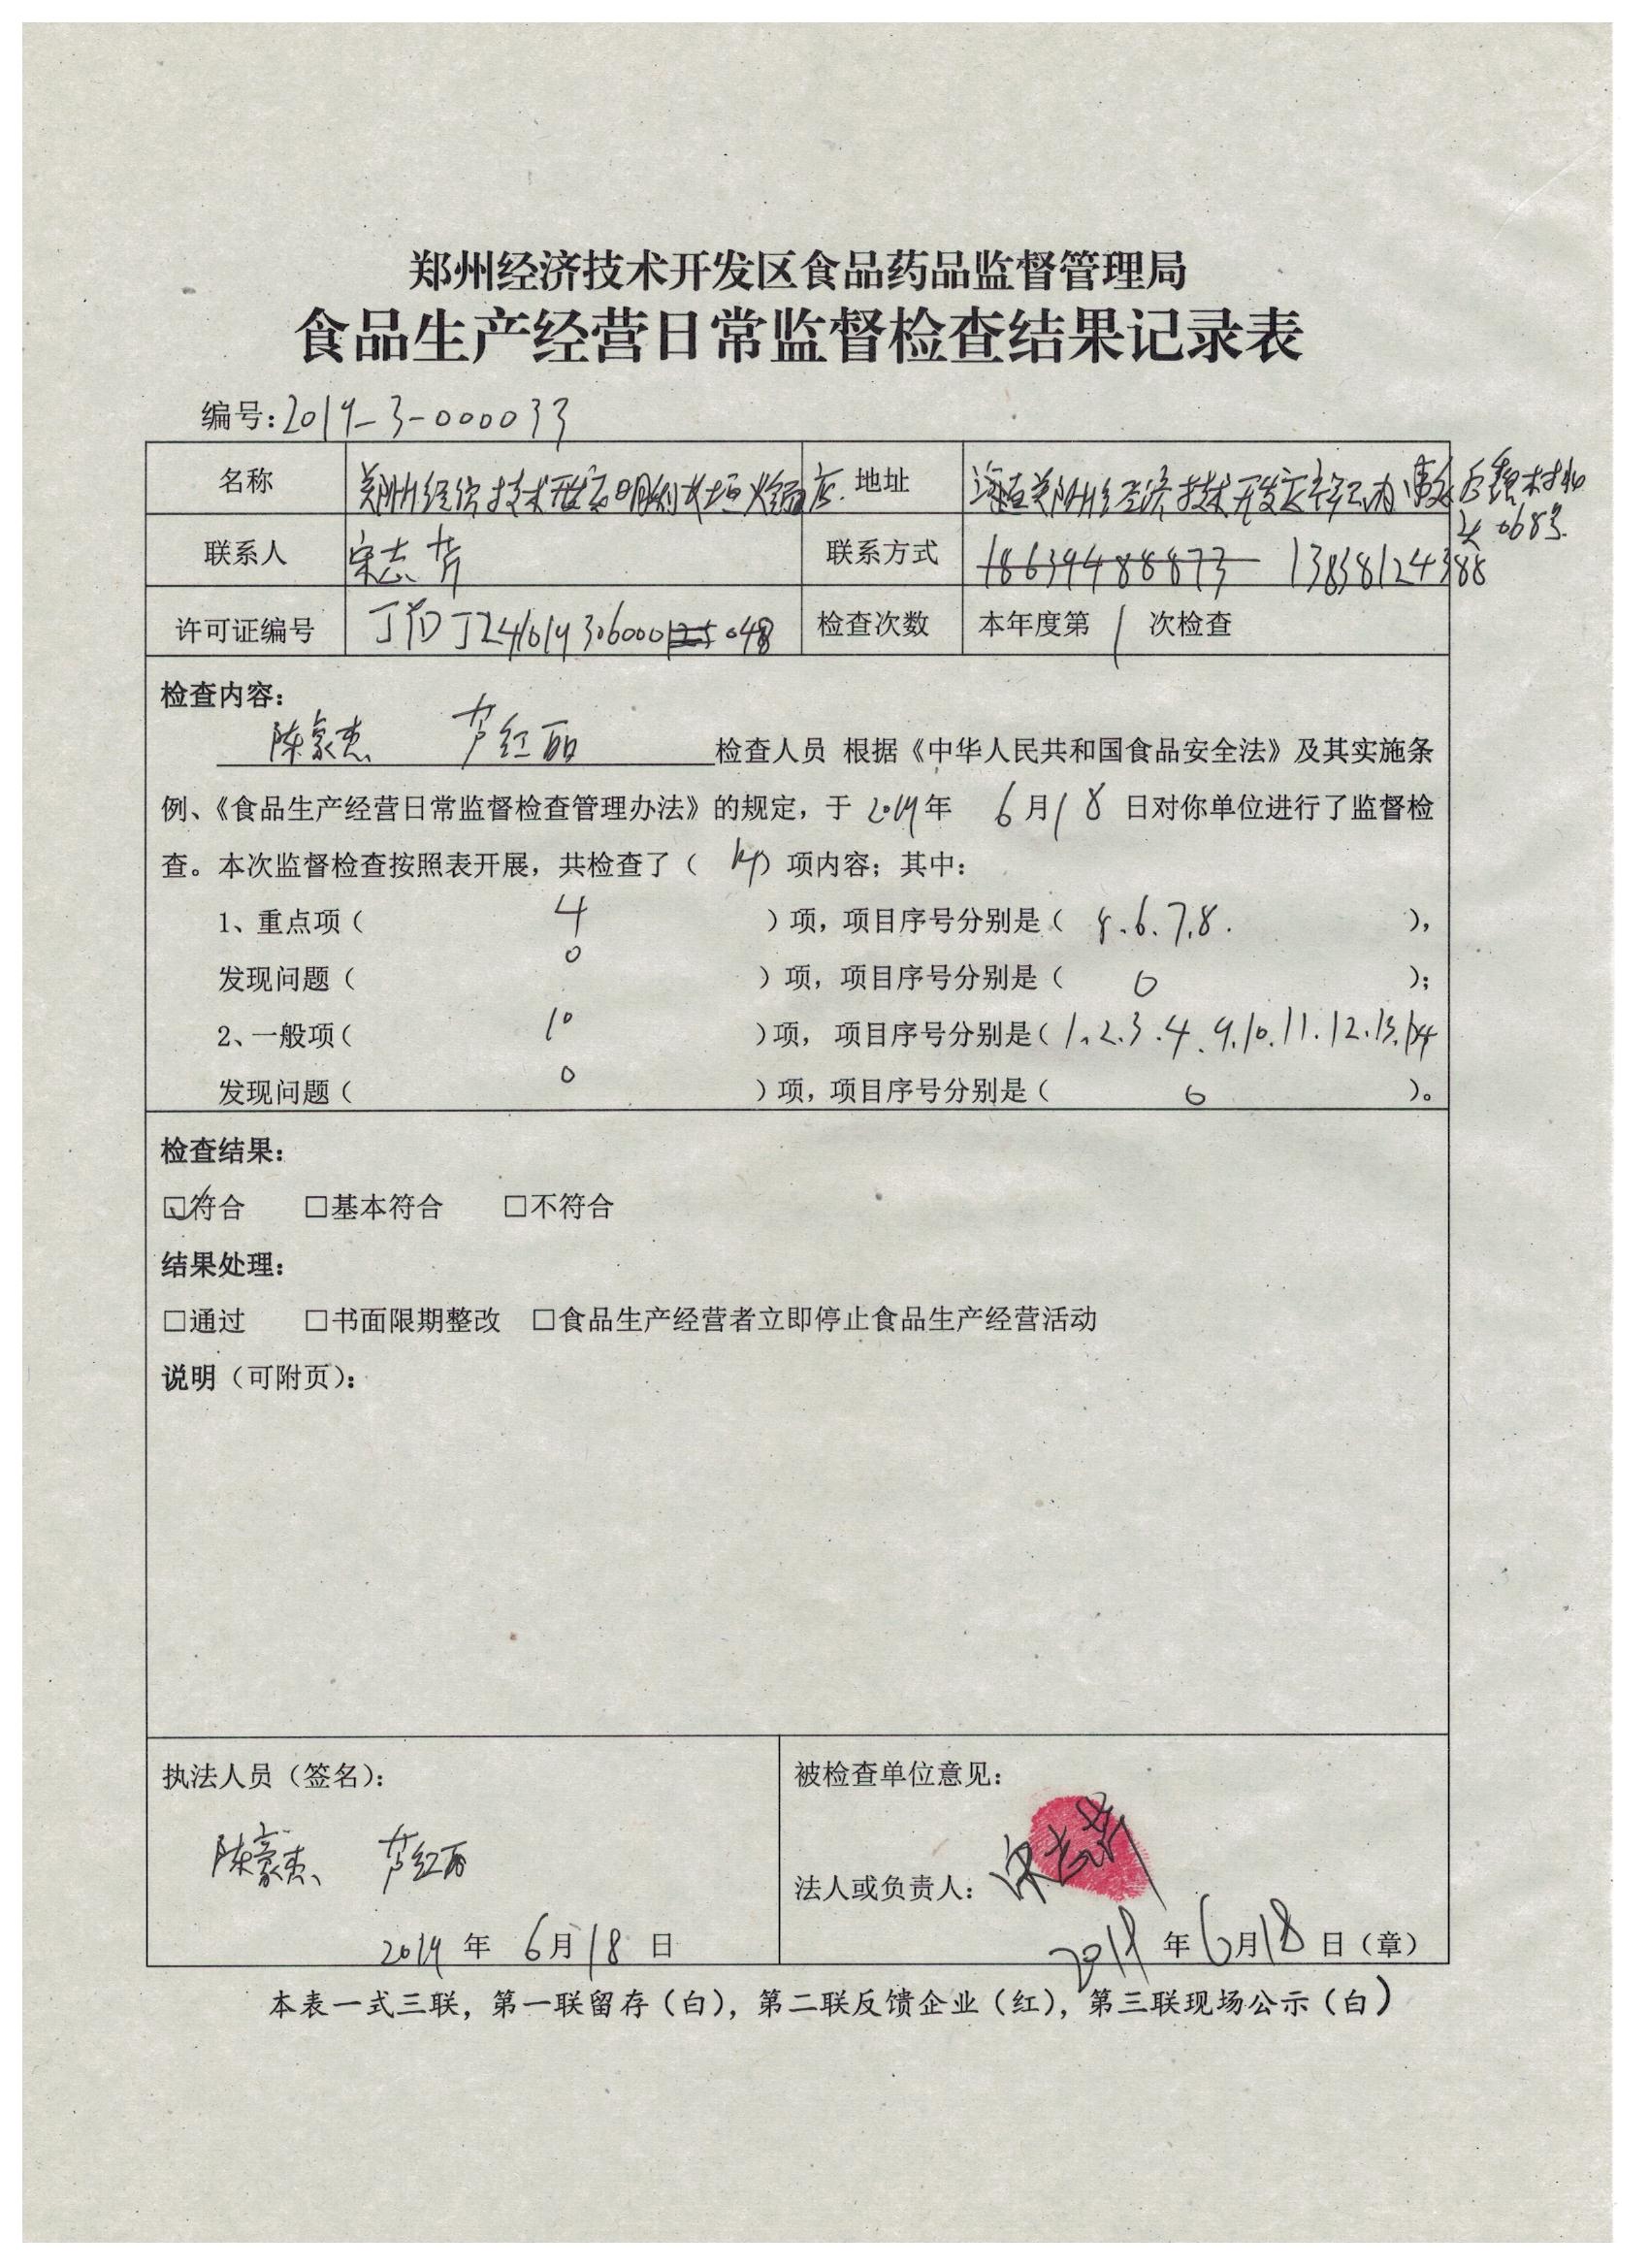 郑州经济技术开发区食品药品监督管理局
食品生产经营日常监督检查结果记录表
编号:2019-3-000033
名称 郑州经济技术开发区明 火锅店. 地址 郑州经济技术开发区 办 村北
头 068号.
联系人 宋志芳 联系方式 18639488873 13838124388
许可证编号 JYDJ24101930600 048 检查次数 本年度第1次检查
检查内容：
陈豪杰 芦红丽 检查人员 根据《中华人民共和国食品安全法》及其实施条
例、《食品生产经营日常监督检查管理办法》的规定，于2019年 6月18日对你单位进行了监督检
查。本次监督检查按照表开展，共检查了（14）项内容；其中：
1、重点项（4）项，项目序号分别是（ .6.7.8.），
发现问题（0）项，项目序号分别是（0）；
2、一般项（10）项， 项目序号分别是（1.2.3.4.9.10.11.12.13.14
发现问题（0）项，项目序号分别是（0）。
检查结果：
☑符合 □基本符合 □不符合
结果处理：
□通过 □书面限期整改 □食品生产经营者立即停止食品生产经营活动
说明（可附页）：
执法人员（签名）： 被检查单位意见：
陈豪杰 芦红丽 法人或负责人：宋志芳
2019年 6月18日 2019年6月18日（章）
本表一式三联，第一联留存（白），第二联反馈企业（红），第三联现场公示（白）